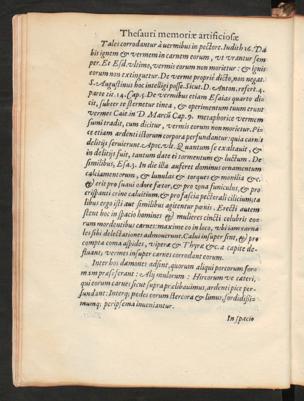 Thesauri memoriæ artificiosæ
Tales corrodantur à vermibus in pectore. Iudith 16. Da
bit ignem & vermes in carnem eorum, ut vrantur sem
per. Et Esa. vltimo, vermis eorum non morietur: & ignis
eorum non extinguetur. De verme proprie dicto, non negat
S. Augustinus hoc intelligi posse. Sicut D. Anton. refert. 4.
parte tit. 14. Cap. 5. De vermibus etiam Esaias quarto di
cit, subter te sternetur tinea, & operimentum tuum erunt
vermes Caiet. in D. Marci Cap. 9. metaphorice vermem
sumi tradit, cum dicitur, vermis eorum non morietur.
ce etiam ardenti illorum corpora perfundantur: quia carnis
delitijs seruierunt. Apoc. Quantum se exaltauit, &
in delitijs fuit, tantum date ei tormentum & luctum. De
similibus, Esa. 3. In die illa auferet dominus ornamentum
calciamentorum, & lunulas & torques & monilia &c.
& erit pro suaui odore fœtor, & pro zona funiculus, & pro
crispanti crine caluitium, & pro fascia pectorali cilicium;
libus ergo isti aut similibus agitentur pœnis. Erecti autem
stent hoc in spacio homines: & mulieres cincti colubris eo
rum mordentibus carnes: maxime eo in loco, vbi iam carna
les sibi delectationes admouerunt. Calui insuper sint, & pro
compta coma aspides, vipera & Thyra &c. a capite de-
fluant; vermes insuper carnes corrodant eorum.
Inter hos damones adsint, quorum aliqui porcorum for
mam præseferant: Alij mulorum: Hircorum ve cateri,
qui eorum carnes sicut supra prælibauimus, ardenti pice per-
fundant: Interq; pedes eorum stercora & limus, sordidissi-
mumq; peripsema inueniantur.
In spacio